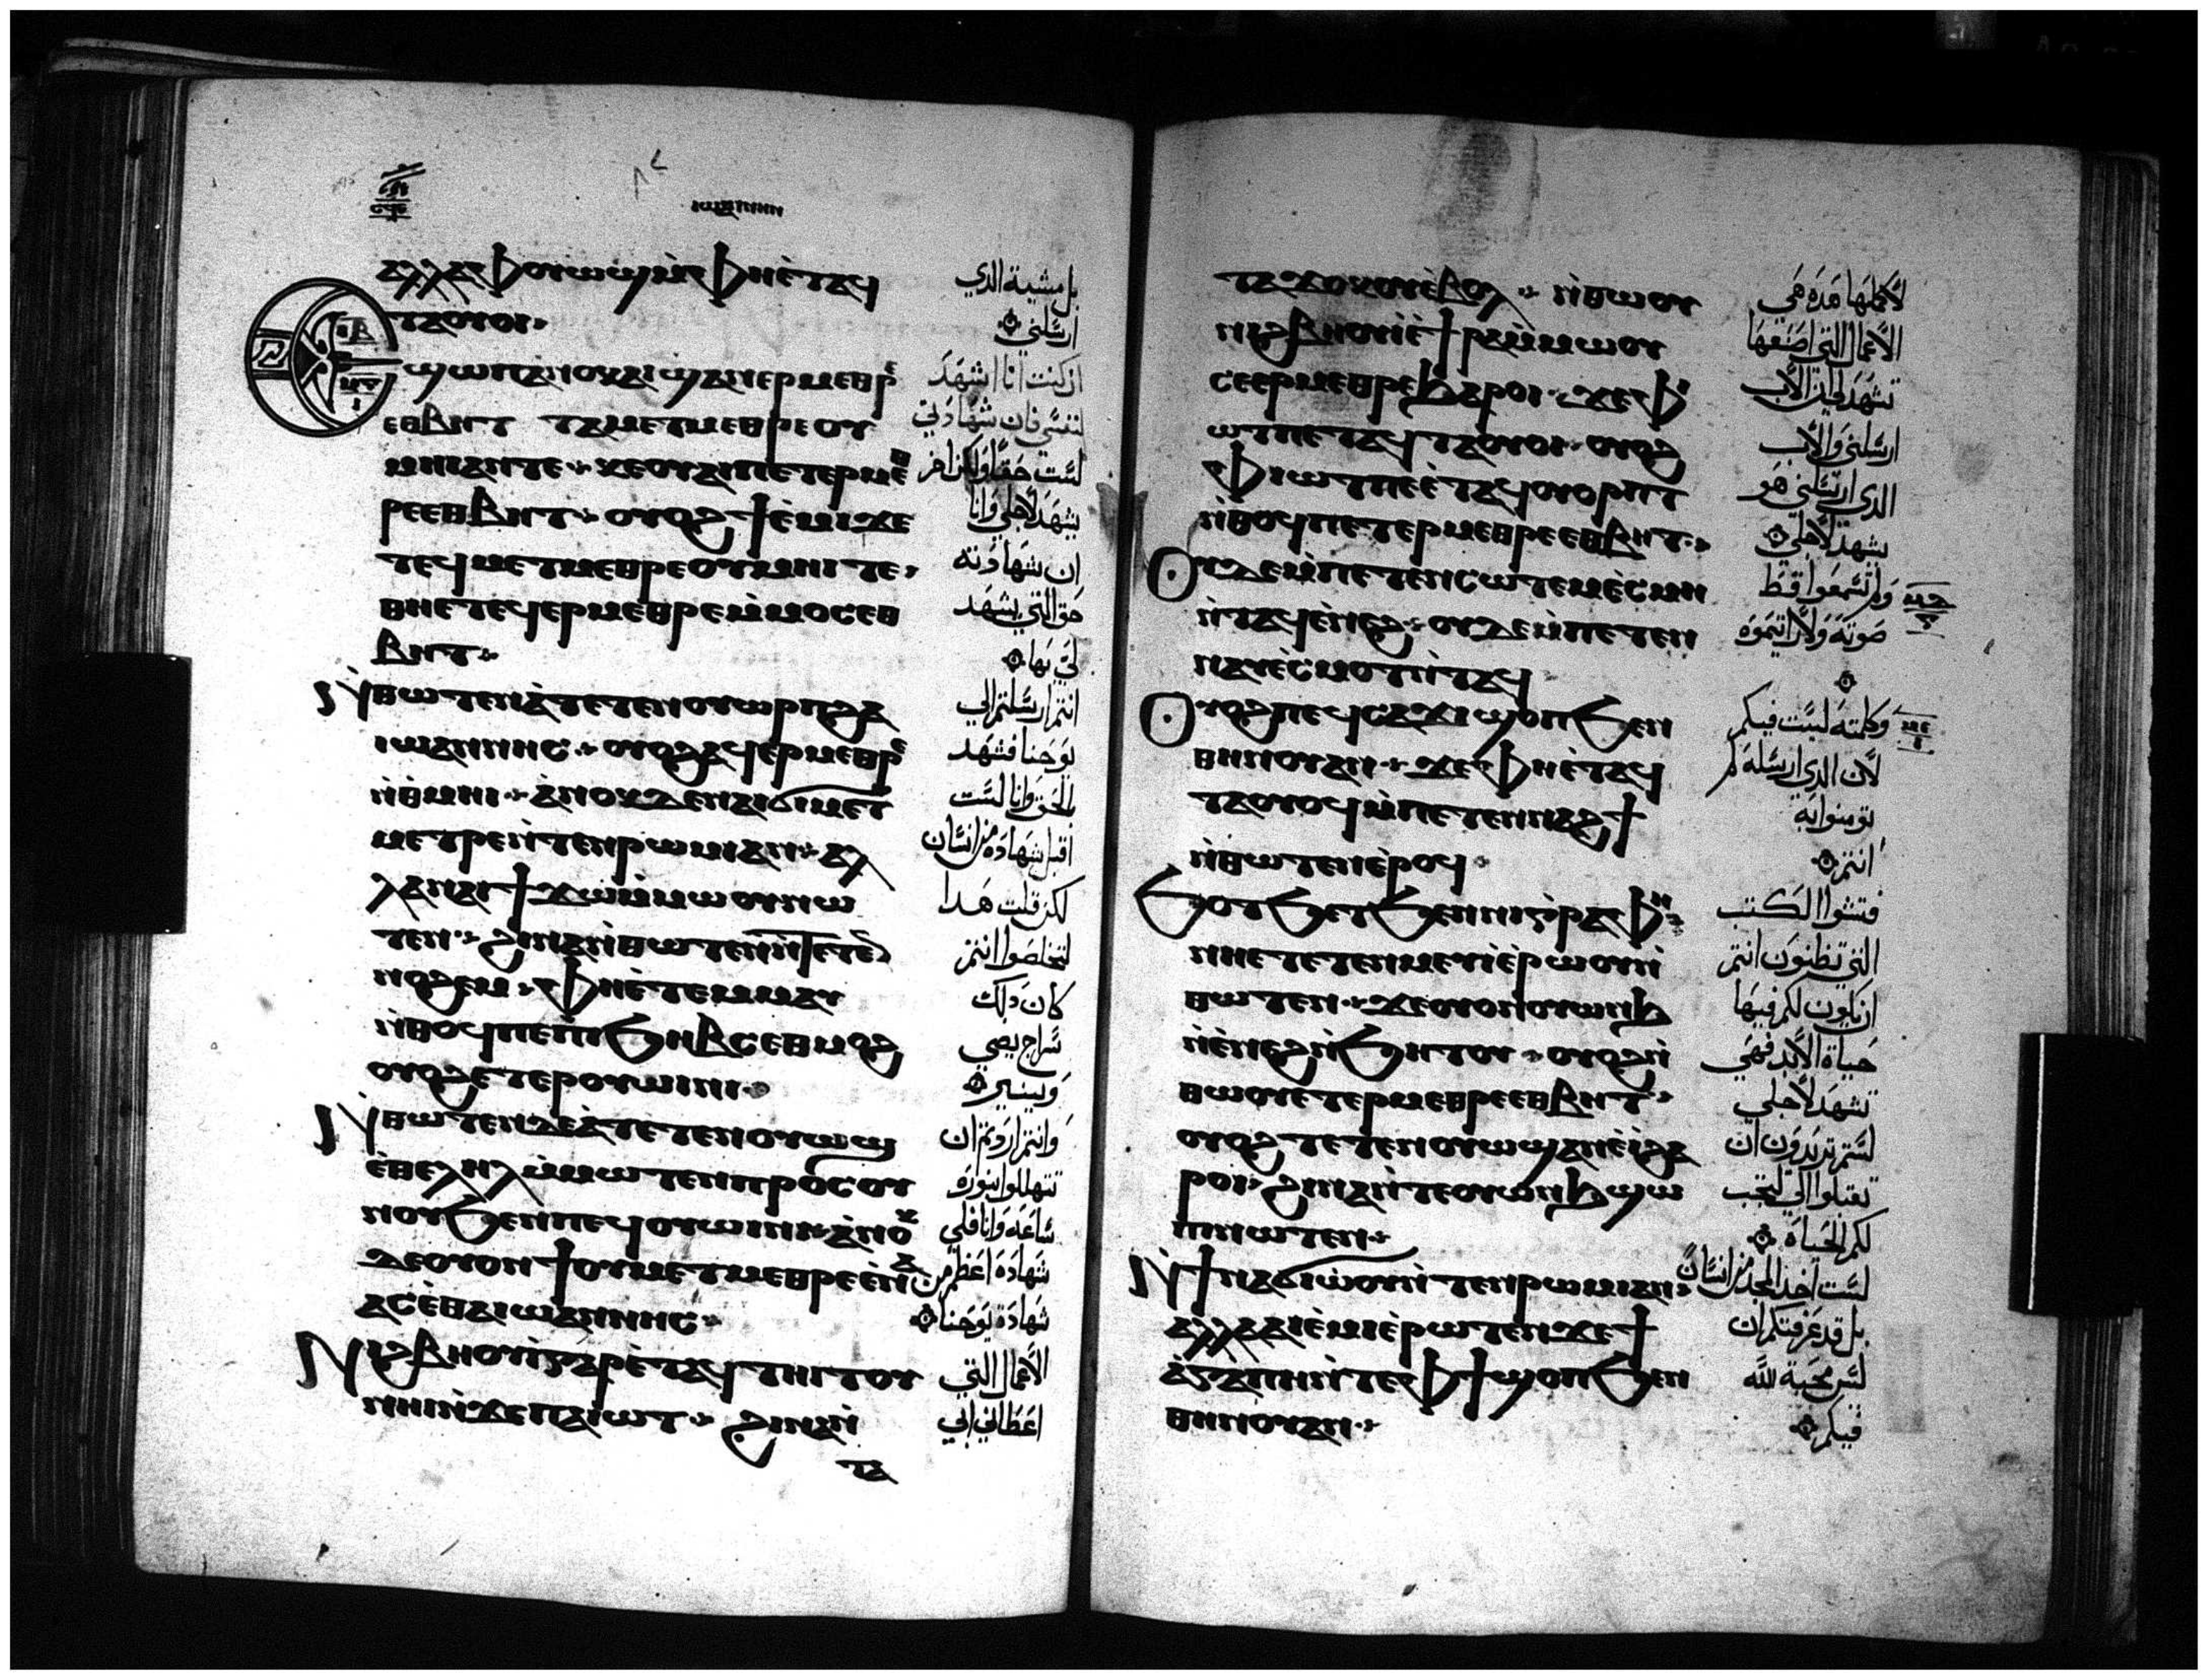 ⲁⲗⲗⲁ ⲫⲟⲩⲱϣ ⲙ̀ⲫⲏⲉ̀ⲧⲁϥ
ⲧⲁⲟⲩⲟⲓ
Ⲉϣⲱⲡ ⲁⲛⲟⲕ ⲁⲓϣⲁⲛⲉⲣⲙⲉⲑⲣⲉ
ⲉⲑⲃⲏⲧ ⲧⲁⲙⲉⲧⲙⲉⲑⲣⲉ ⲟⲩ
ⲙⲏⲓ ⲁⲛⲧⲉ ⲕⲉⲟⲩⲁⲓ ⲡⲉⲧⲉⲣⲙⲉⲑ
ⲣⲉ ⲉⲑⲃⲏⲧ ⲟⲩⲟϩ ϯⲉ̀ⲙⲓ ϫⲉ
ⲧⲉϥⲙⲉⲧⲙⲉⲑⲣⲉ ⲟⲩⲙⲏⲓ ⲧⲉ
ⲑⲏⲉⲧⲉϥⲉⲣⲙⲉⲑⲣⲉ ⲙ̀ⲙⲟⲥ ⲉⲑ
ⲃⲏⲧ
Ⲛ̀ⲑⲱⲧⲉⲛ ⲁ̀ⲧⲉⲧⲉⲛⲟⲩⲱⲣⲡ ϩⲁ
ⲓⲱⲁⲛⲛⲏⲥ ⲟⲩⲟϩ ⲁϥⲉⲣⲙⲉⲑⲣⲉ
ⲛ̀ⲑⲙⲏⲓ ⲁ̀ⲛⲟⲕ ⲇⲉ ⲛⲁⲓϭⲓ ⲙⲉⲧ
ⲙⲉⲧⲣⲉ ⲛ̀ⲧⲉⲛⲣⲱⲙⲓ ⲁⲛ ⲁⲗ
ⲗⲁ ⲛⲁⲓ ϯϫⲱ ⲙ̀ⲙⲱⲟⲩ ⲛⲱ
ⲧⲉⲛ ϩⲓⲛⲁ ⲛ̀ⲑⲱⲧⲉⲛ ⲛ̀ⲧⲉⲧⲉⲛ
ⲛⲟϩⲉⲙ ⲫⲏⲉ̀ⲧⲉⲙⲙⲁⲩ
ⲛ̀ⲑⲟϥ ⲡⲉ ⲡⲓϧⲏⲃⲥ ⲉⲑⲙⲟϩ
ⲟⲩⲟϩ ⲉⲧⲉⲣⲟⲩⲱⲓⲛⲓ
Ⲛ̀ⲑⲱⲧⲉⲛ ⲇⲉ ⲁ̀ⲧⲉⲧⲉⲛⲟⲩⲱϣ
ⲉ̀ⲑⲉⲗⲏⲗ ⲙ̀ⲙⲱⲧⲉⲛ ⲡⲣⲟⲥ ⲟⲩ
ⲛⲟⲩ ϧⲉⲛ ⲡⲉϥⲟⲩⲱⲓⲛⲓ ⲁ̀ⲛⲟⲕ
ⲇⲉ ⲟⲩⲟⲛϯ ⲟⲩⲙⲉⲧⲙⲉⲑⲣⲉ ⲉⲛⲁ
ⲁⲥ ⲉ̀ⲑⲁ ⲓⲱⲁⲛⲛⲏⲥ
Ⲛⲓϩⲃⲏⲟⲩⲓ̀ ⲅⲁⲣ ⲉ̀ⲧⲁϥⲧⲏⲓⲧⲟⲩ
ⲛⲏⲓ ⲛ̀ϫⲉ ⲡⲁⲓⲱⲧ ϩⲓⲛⲁ ⲛ̀
ⲧⲁ
بل مشية الدي
ارسلني
ان كنت انا اشهد
لنفسي فان شهادتي
ليست حقا ولكن اخر
يشهد لاجلي وانا
ان شهادته
حق التي يشهد
لي بها
انتم ارسلتم الي
يوحنا فشهد
بالحق وانا لست
اقبل شهاده من انسان
لكن قلت هدا
لتخلصوا انتم
كان دلك
سراج يضي
وينير
وانتم اردتم ان
تتهللوا بنوره
ساعه وانا فلي
شهادة اعظم من
شهادة يوحنا
الاعمال التي
اعطاني ابي
ⲧⲁϫⲟⲕⲟⲩ ⲉ̀ⲃⲟⲗ ⲛ̀ⲑⲱⲟⲩ
ⲛⲓϩⲃⲏⲟⲩⲓ̀ ⲉ̀ϯⲣⲁ ⲙ̀ⲙⲱⲟⲩ
ⲥⲉⲉⲣⲙⲉⲑⲣⲉ ϧⲁⲣⲟⲓ ϫⲉ ⲫ
ⲱⲧ ⲡⲉⲧⲁϥⲧⲁⲟⲩⲟⲓ ⲟⲩⲟϩ
ⲫⲓⲱⲧ ⲡⲉⲉ̀ⲧⲁϥⲟⲩⲟⲣⲡⲧ
ⲛ̀ⲑⲟϥ ⲡⲉⲧⲉⲣⲙⲉⲑⲣⲉ ⲉⲑⲃⲏⲧ
Ⲟⲩⲇⲉ ⲙ̀ⲡⲉⲧⲉⲛⲥⲱⲧⲉⲙ ⲉ̀ⲥⲙⲏ
ⲛ̀ⲧⲁϥ ⲉ̀ⲛⲉϩ ⲟⲩⲇⲉ ⲙ̀ⲡⲉⲧⲉⲛ
ⲛⲁⲩ ⲉ̀ⲥⲙⲟⲧ ⲛ̀ⲧⲁϥ
Ⲟⲩⲟϩ ⲡⲉϥⲥⲁϫⲓ ϣⲟⲡ ϧⲉⲛ
ⲑⲏⲛⲟⲩ ⲁⲛ ϫⲉ ⲫⲏⲉ̀ⲧⲁϥ
ⲧⲁⲟⲩⲟϥ ⲙ̀ⲡⲉⲧⲉⲛⲛⲁϩϯ
ⲛ̀ⲑⲱⲧⲉⲛ ⲉ̀ⲣⲟϥ
Ϧⲟⲧϧⲉⲧ ϧⲉⲛ ⲛⲓⲅⲣⲁⲫⲏ
ⲛⲏⲉⲧⲉⲧⲉⲛⲙⲉⲩⲓ̀ ⲉ̀ⲣⲱⲟⲩ ⲛ̀
ⲑⲱⲧⲉⲛ ϫⲉ ⲟⲩⲟⲛ ⲟⲩⲱⲛϧ
ⲛ̀ⲉ̀ⲛⲉϩ ⲛ̀ϧⲏⲧⲟⲩ ⲟⲩⲟϩ ⲛ̀
ⲑⲱⲟⲩ ⲉⲧⲉⲣⲙⲉⲑⲣⲉ ⲉⲑⲃⲏⲧ
ⲟⲩⲟϩ ⲧⲉⲧⲉⲛⲟⲩⲱϣ ⲁⲛ ⲉ̀ⲓ̀ ϩⲁ
ⲣⲟⲓ ϩⲓⲛⲁ ⲛ̀ⲧⲉ ⲟⲩⲱⲛϧ ϣⲱ
ⲡⲓ ⲛⲱⲧⲉⲛ
Ⲛ̀ϯⲛⲁϭⲓ ⲱ̀ⲟⲩ ⲛ̀ⲧⲉⲛⲣⲱⲙⲓ ⲁⲛ
ⲁⲗⲗⲁ ⲁⲓⲉ̀ⲙⲓ ⲉ̀ⲣⲱⲧⲉⲛ ϫⲉ ϯ
ⲁ̀ⲅⲁⲡⲏ ⲛ̀ⲧⲉ ⲫϯ ϣⲟⲡ ϧⲉⲛ
ⲑⲏⲛⲟⲩ ⲁⲛ
لاكملها هده هي
الاعمال التي اصنعها
تشهد لي ان الاب
ارسلني والاب
الدي ارسلني هو
يشهد لاجلي
ولم تسمعوا قط
صوته ولا رايتموه
وكلمته ليست فيكم
لان الدي ارسله لم
تومنوا به
انتم
فتشوا الكتب
التي تظنون انتم
ان يكون لكم فيها
حياة الابد فهي
تشهد لاجلي
لستم تريدون ان
تقبلوا الي لتجب
لكم الحياه
لست اخد المجد من انسان
بل قد عرفتكم ان
ليس محبة الله
فيكم